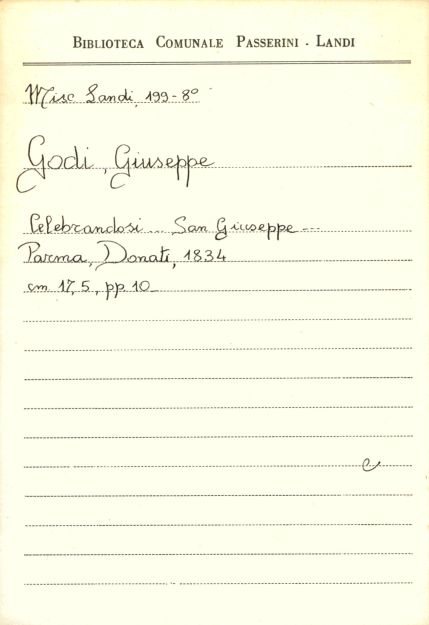 BIBLIOTECA COMUNALE PASSERINI - LANDI
Misc Landi, 199-8°
Godi, Giuseppe
Celebrandosi ... San Giuseppe ---
Parma, Donati, 1834
cm 17,5, pp. 10
e